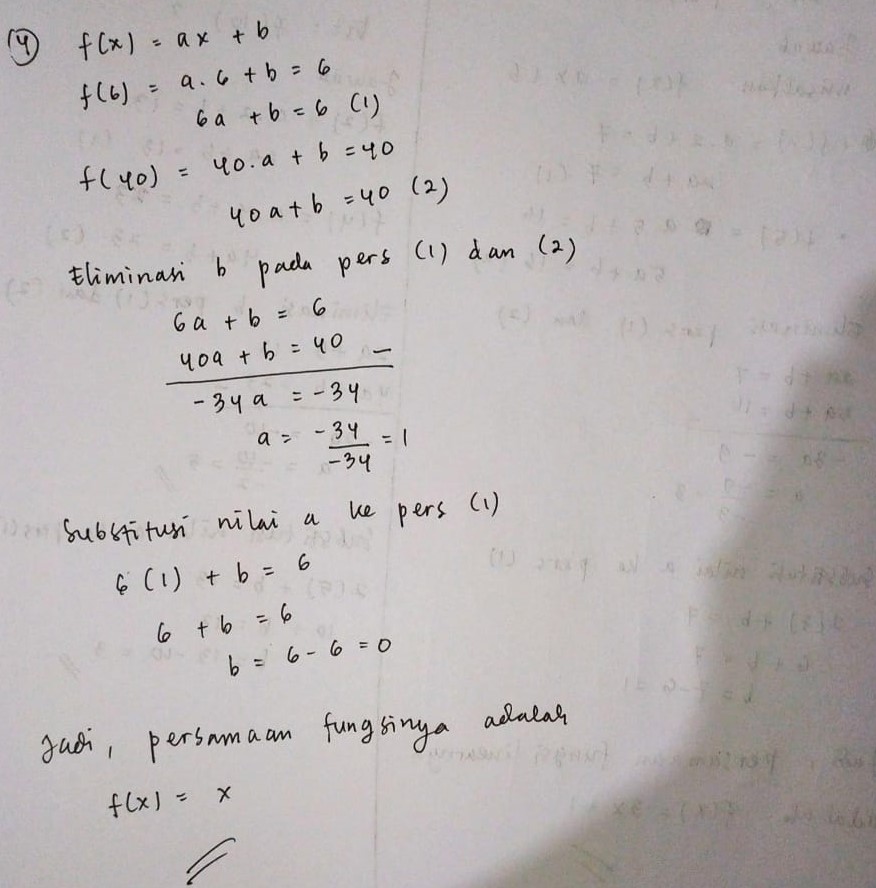 (4) f(x) = ax + b
f(6) = a. 6 + b = 6
6a + b = 6 (1)
f(40) = 40.a + b = 40
40a + b = 40 (2)
Eliminasi b pada pers (1) dan (2)
6a + b = 6
40a + b = 40 -
-34a = -34
a = -34/-34 = 1
Substitusi nilai a ke pers (1)
6 (1) + b = 6
6 + b = 6
b = 6 - 6 = 0
Jadi, persamaan fungsinya adalah
f(x) = x